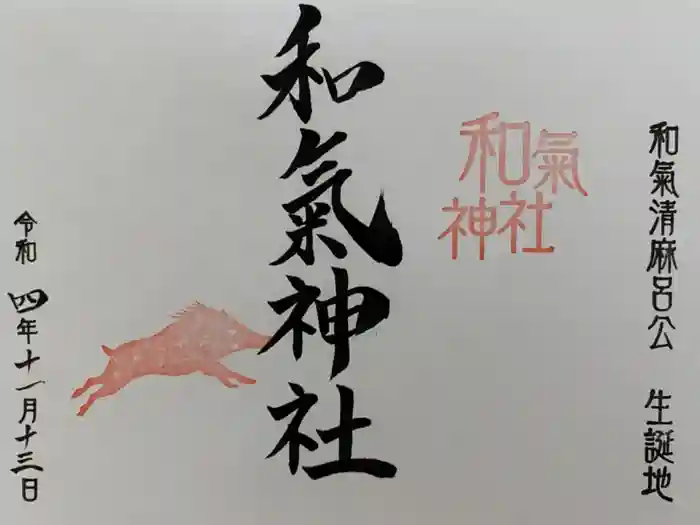 和氣清麻呂公 生誕地
和氣
神社
和氣神社
令和四年十一月十三日